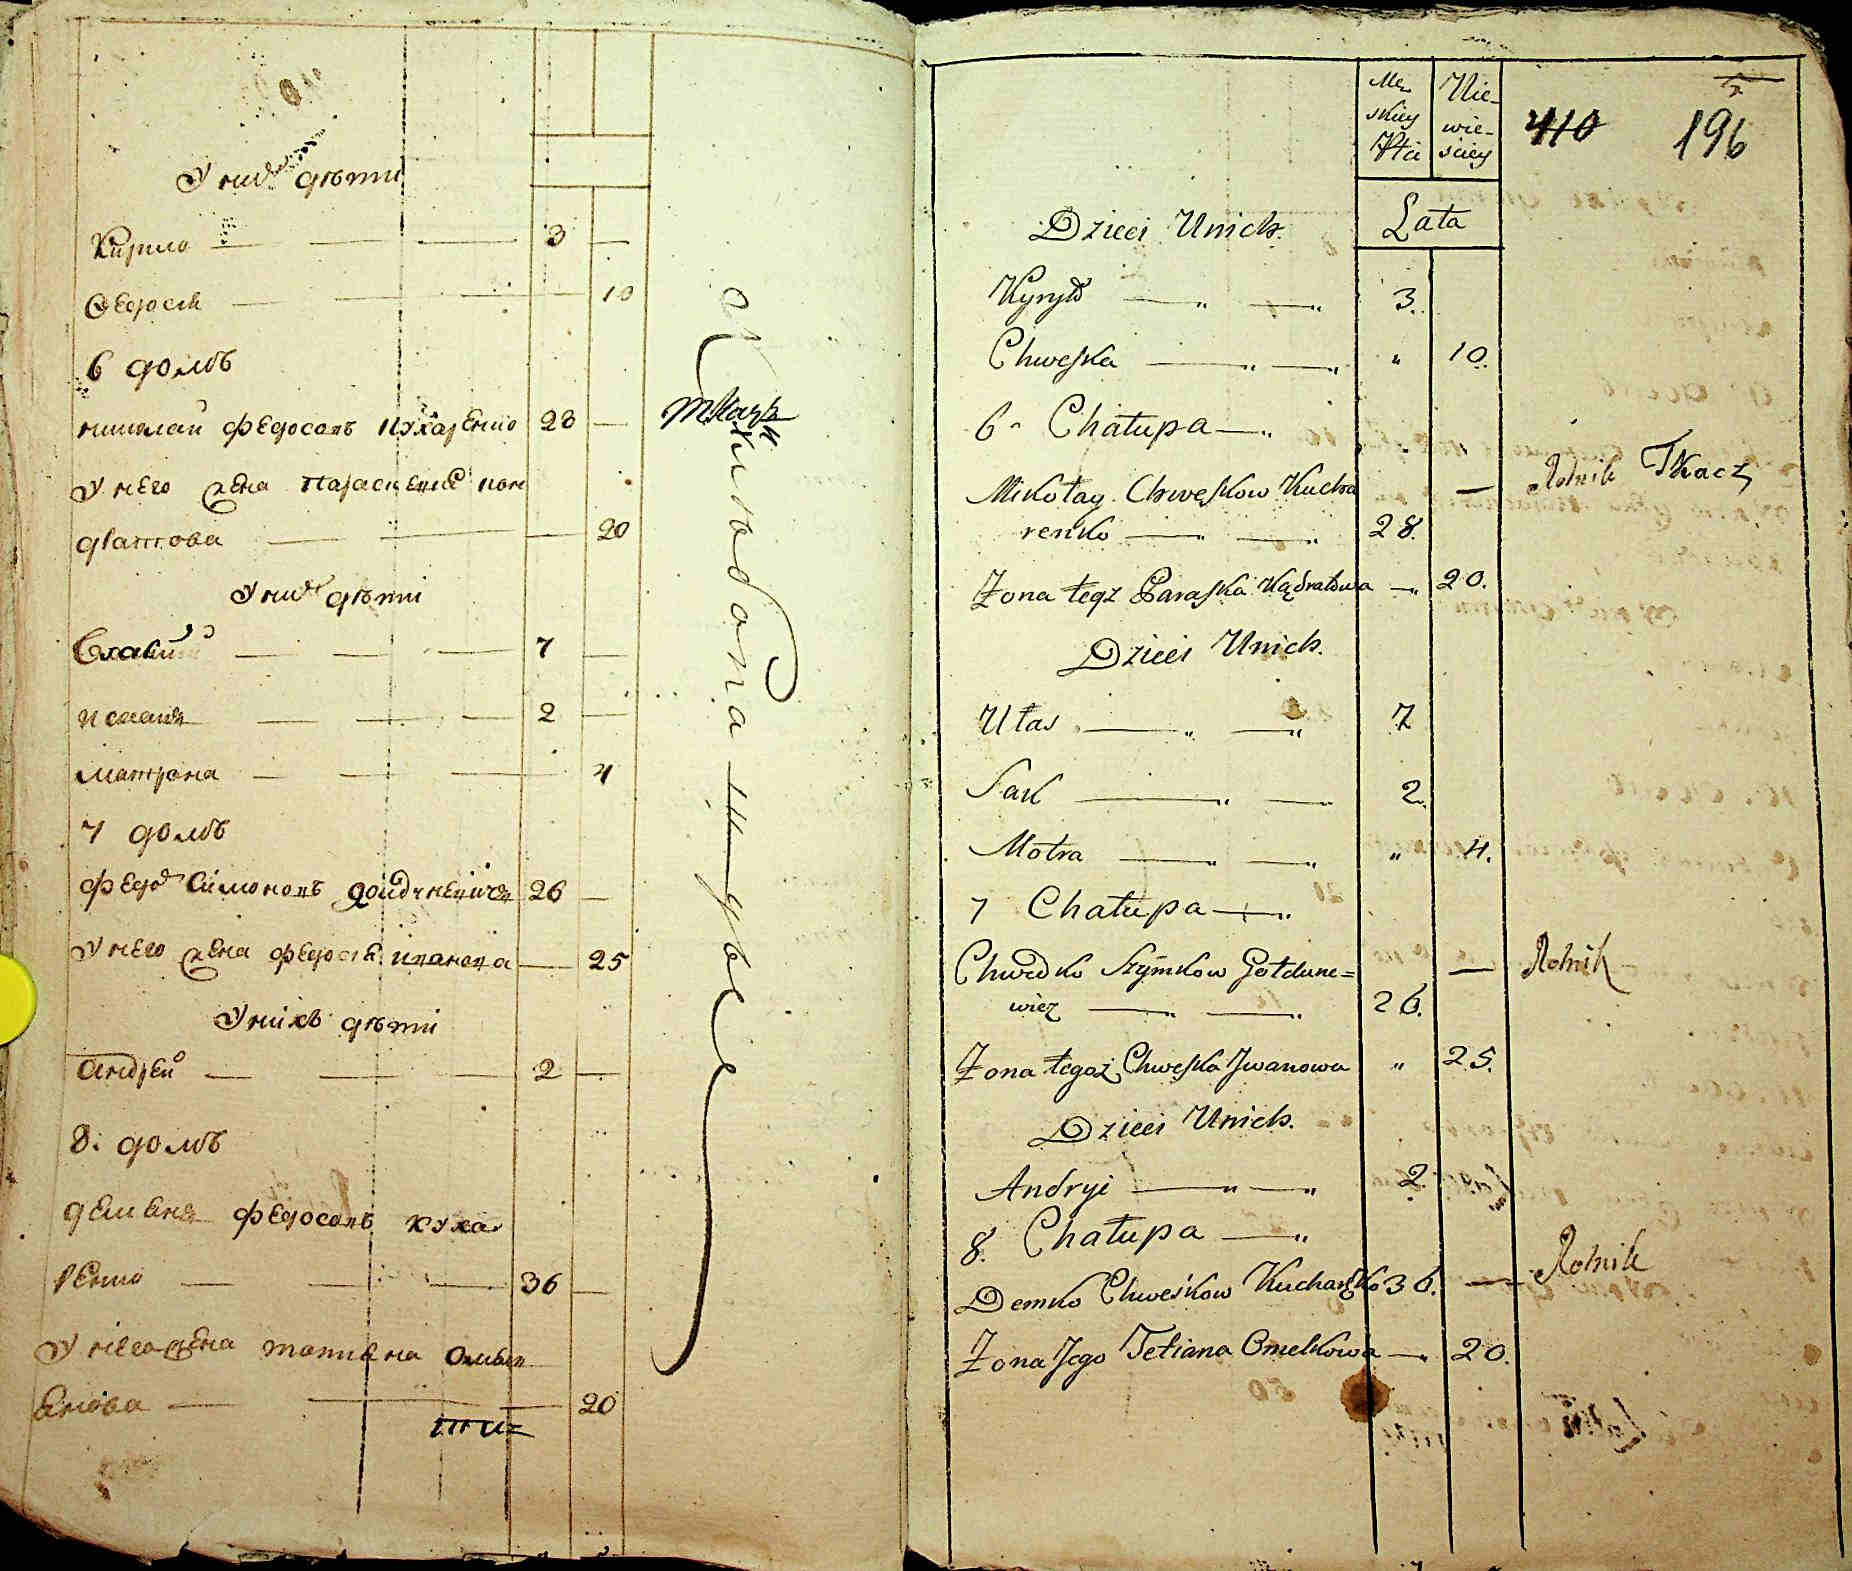 У них дѣти
Кирило 3
Ѳедосія 10
6 домъ
николай федосовъ кухаренко 28
ткачъ
У него жена Параскевія кон
дратова 20
У них дѣти
Власій 7
исакий 2
матрона 4
7 домъ
федор Симоновъ 26
У него жена федосія иванова 25
У нихъ дѣти
Андрей 2
8. домъ
демьянъ федосовъ куха
ренко 36
У него жена татияна Омель
янова 20
Mę
skiey
Płci
Nie
wie
sciey
410
196
Lata
Dzieci Unich.
Kyryło 3.
Chweśka " 10.
6 Chałupa
Mikołay Chwęskow Kucha
renko 28.
Rolnik Tkacz
Żona tegż Paraska Kądratowa 20.
Dzieci Unich.
Ułas 7
Sak 2.
Motra " 4.
7 Chałupa
Chwedko Szymkow Gołdune=
wicz 26.
Rolnik
Żona tegoż Chweśka Jwanowa " 25.
Dzieci Unich.
Andryi 2.
8. Chałupa
Demko Chweśkow Kucharęko 36.
Rolnik
Żona Jego Tetiana Omelkowa 20.